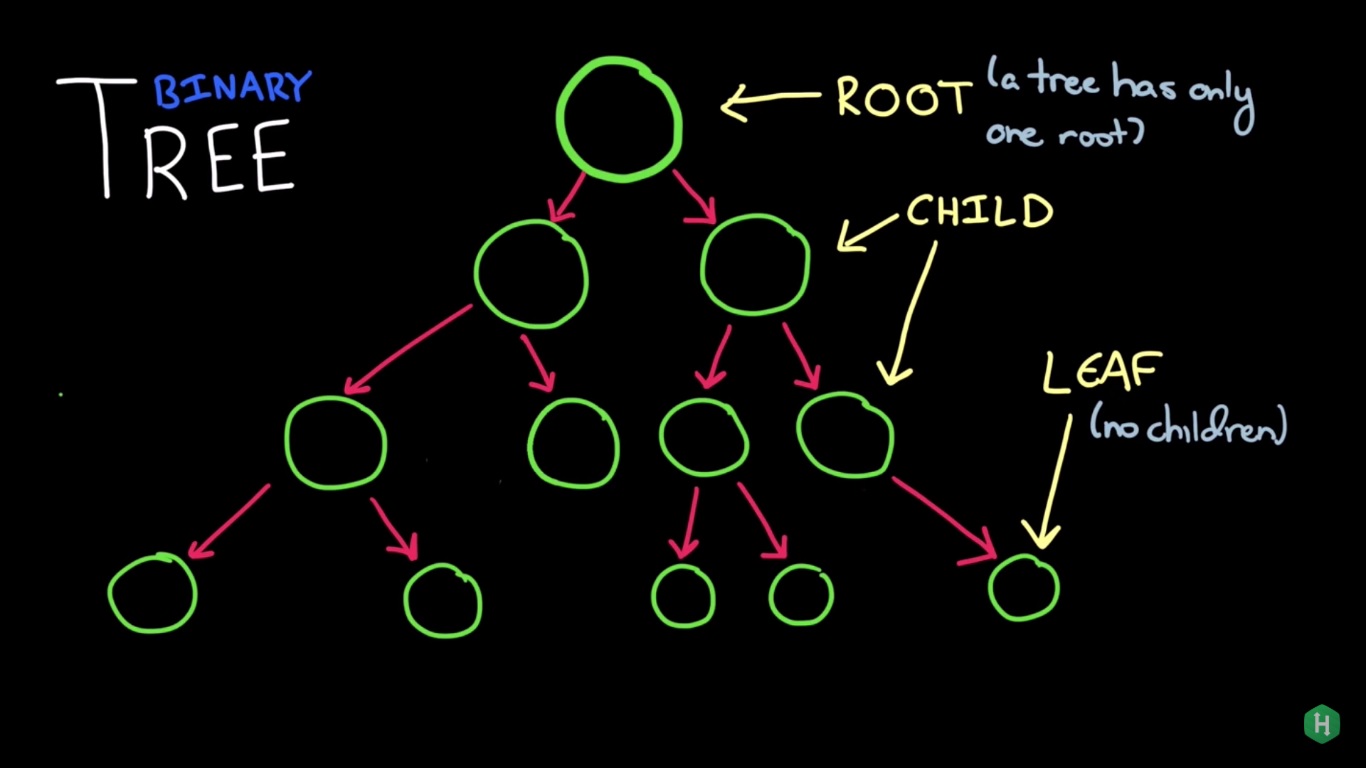 BINARY
TREE
ROOT (a tree has only
one root)
CHILD
LEAF
(no children)
H